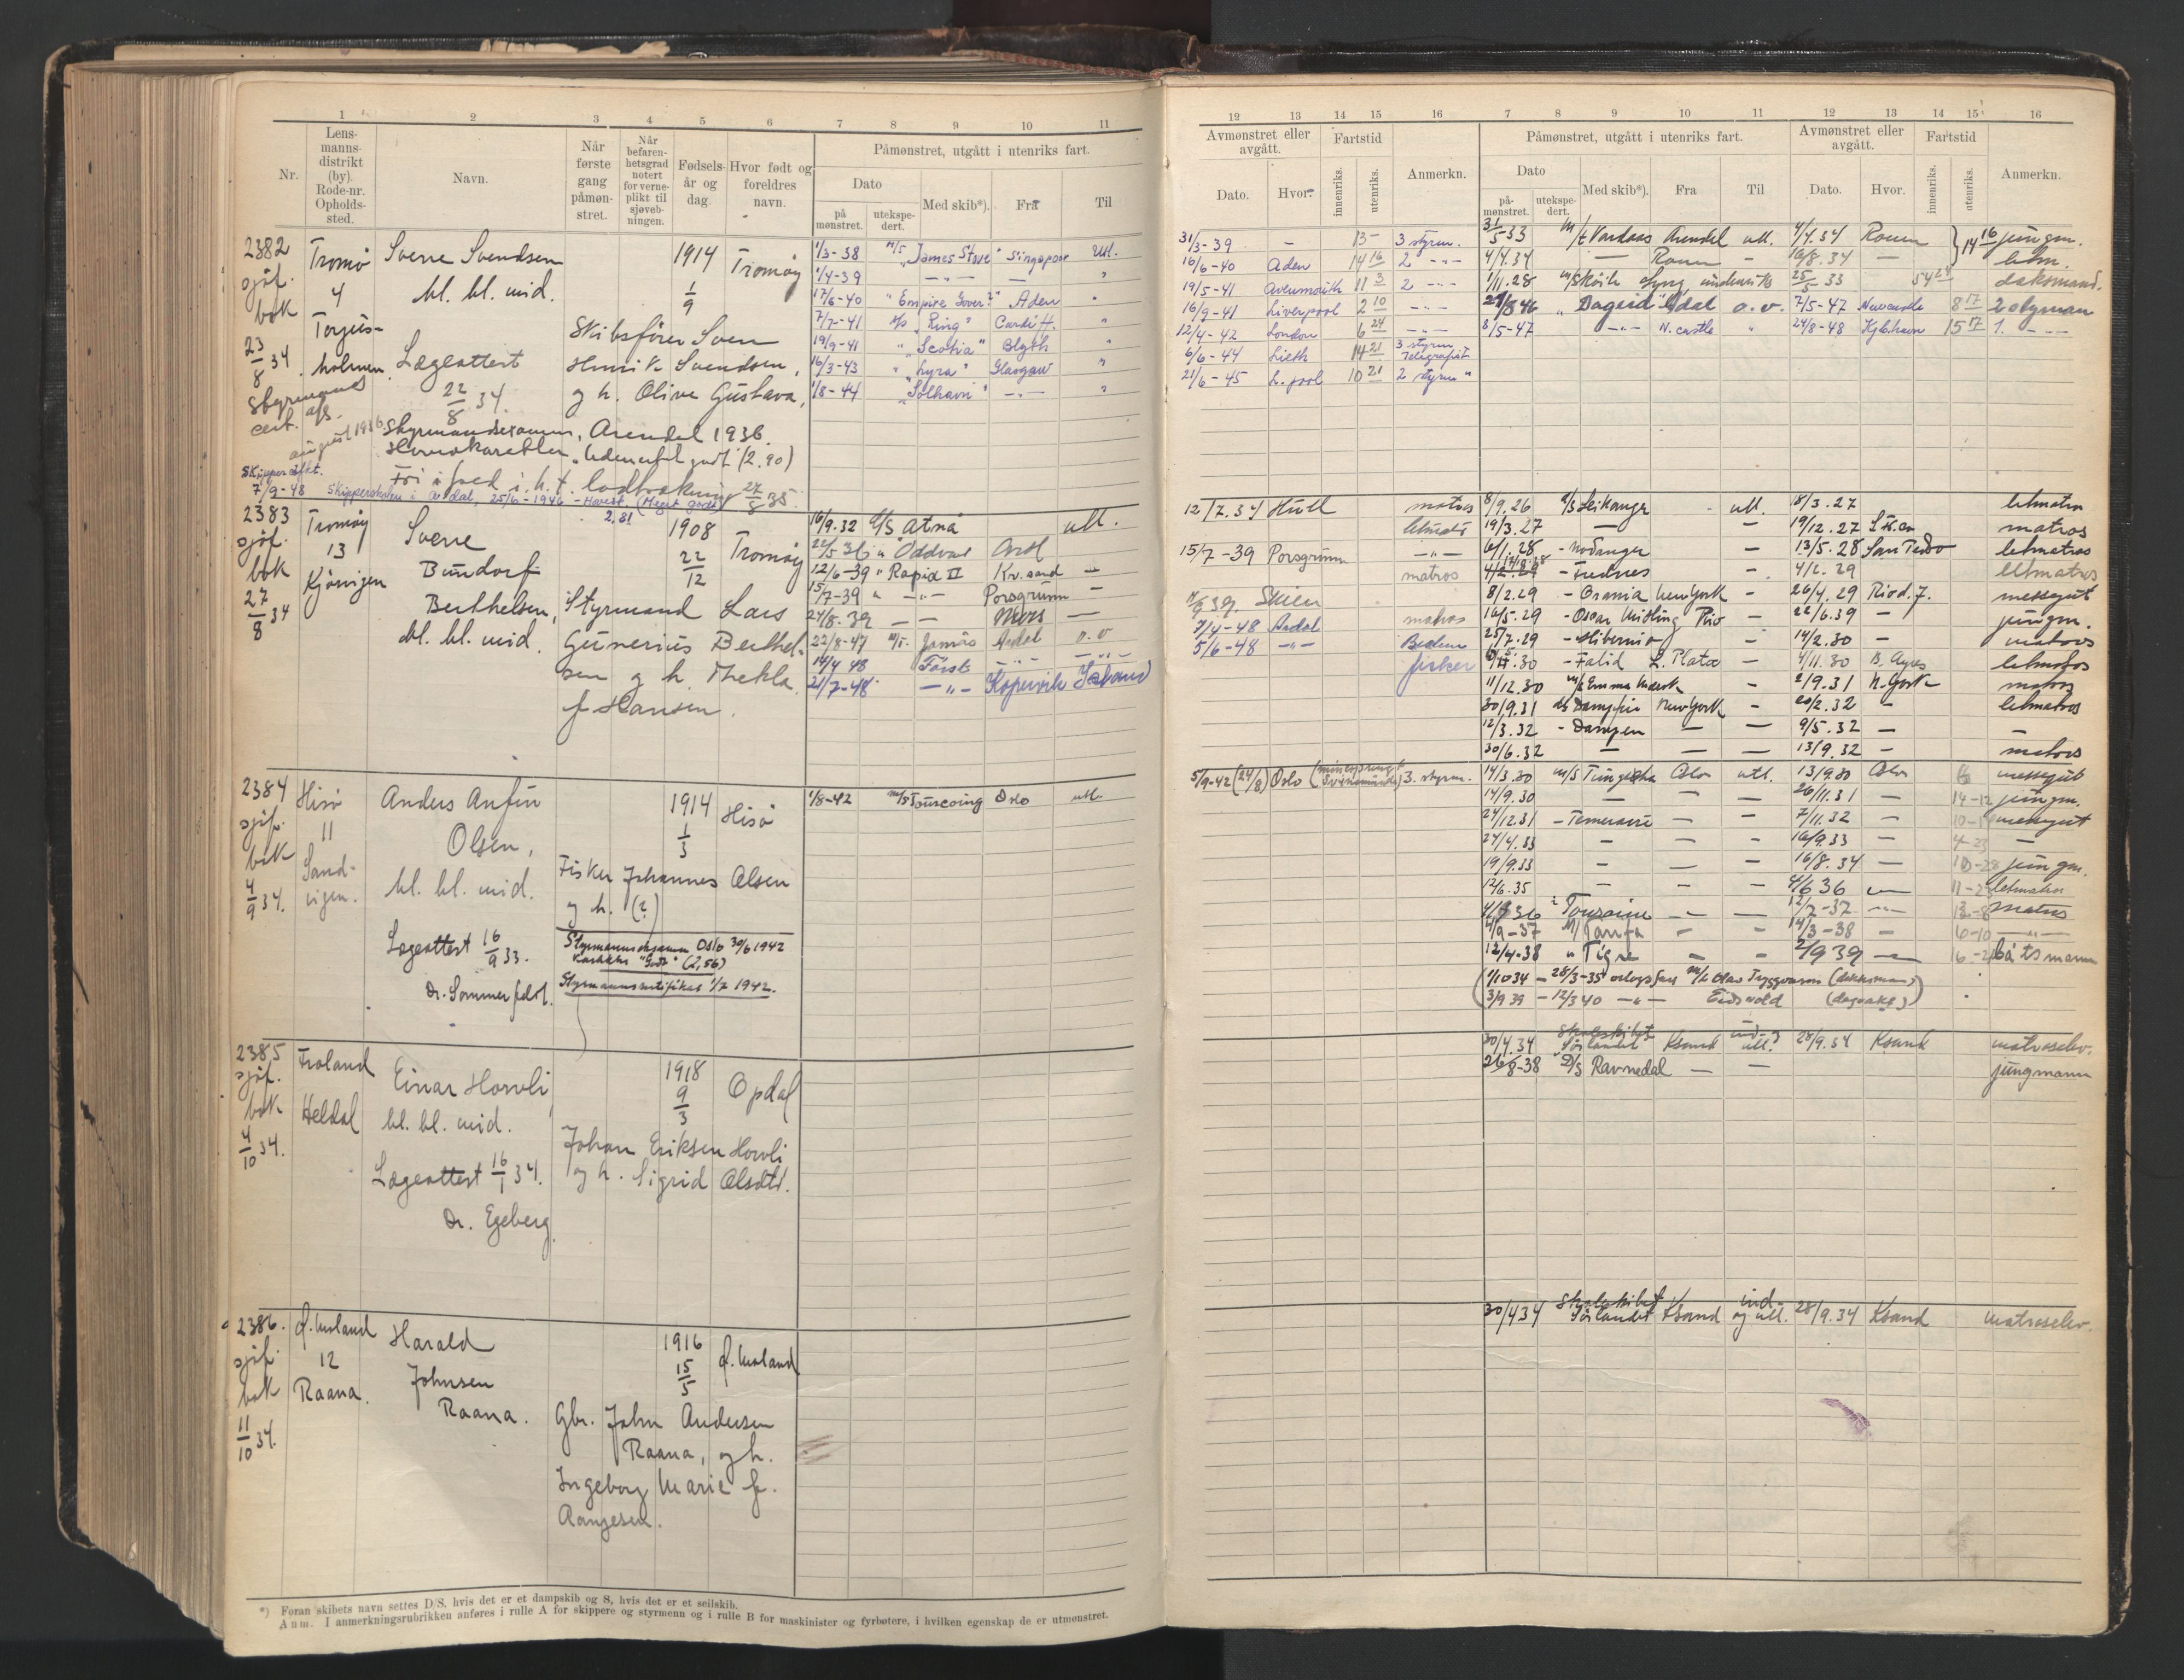 1 2 3 4 5 6 7 8 9 10 11
Nr. Lens-manns-distrikt (by). Rode-nr. Opholds-sted. Navn. Når første gang påmøn-stret. Når befaren-hetsgrad notert for verne-plikt til sjøveb-ningen. Fødsels-år og dag. Hvor født og foreldres navn. Påmønstret, utgått i utenriks fart.
Dato Med skib*). Fra Til
på mønstret. utekspe-dert.
2382 Tromø Sverre Svendsen 1914 Tromøy
sjøf. 4 bl. bl. mid. 1/9
bok Torjus-
23/8 34. holmen. Lægeattest Skibsfører Sven
22/8 34. Henrik Svendsen,
og h. Olive Gustava,
Styrmands
cert. afs.
august 1936 Styrmandsexamen, Arendal 1936.
Hovedkarakter (2.90)
Skipper
7/9-48 Skipperskolen i Ardal, 25/6-1946 - (Meget godt) 2,81
27/8 35.
1/3-38 M/S "James Stove" Singapore Utl.
1/4-39 — " — —
17/6-40 "Empire Aden "
7/7-41 "Ring" Cardiff "
19/9-41 "Scotia" Blyth "
16/3-43 "Lyra" Glasgow "
1/8-44 "Solhavn" — " — "
2383 Tromøy Sverre 1908 Tromøy
sjøf. 13 Bundorf 22/12
bok Kjørvigen Berthelsen, Styrmand Lars
27/8 34 bl. bl. mid. Gunerius Berthel-
sen og h. Thekla
f. Hansen.
16/9.32 D/S Atna utl.
22/5 36 " Oddvar
12/6-39 " Rapid II Kr.sand —
15/7-39 " — " — Porsgrunn —
24/8.39 — — —
22/8-47 M/S. Ardal
Først
21/7-48 — " — Kopervik Island
2384 Hisø Anders Anfin 1914 Hisø
sjøf. 11 Olsen, 1/3
bok Sand- bl. bl. mid. Fisker Johannes Olsen
4/9 34. vigen. og h. (?)
Lægeattest 16/9 33. Styrmannseksamen Oslo 30/6 1942
Karakter "Godt" (2,56)
Dr. Sommerfeldt. Styrmannssertifikat 1/7 1942.
1/8-42 M/S Tourcoing Oslo utl.
2385 Froland Einar Horvli 1918 Opdal
sjøf. bl. bl. mid. 9/3
bok Heldal Johan Eriksen Horvli
4/10 34. Lægeattest 16/1 34. og h. Sigrid Olsdtr.
Dr. Egeberg.
2386. Harald 1916
sjøf. 12 Johnsen 15/5
bok Raana. Raana. Gbr. John Andersen
11/10 34. Raana, og h.
Ingeborg Marie f.
Aanjesen.
*) Foran skibets navn settes D/S, hvis det er et dampskib og S, hvis det er et seilskib.
Anm. I anmerkningsrubrikken anføres i rulle A for skippere og styrmenn og i rulle B for maskinister og fyrbøtere, i hvilken egenskap de er utmønstret.
12 13 14 15 16 7 8 9 10 11 12 13 14 15 16
Avmønstret eller avgått. Fartstid Anmerkn. Påmønstret, utgått i utenriks fart. Avmønstret eller avgått. Fartstid Anmerkn.
Dato. Hvor. innenriks. utenriks. Dato Med skib*). Fra Til Dato. Hvor. innenriks. utenriks.
på-mønstret. utekspe-dert.
31/3-39 — 13 — 3 styrm. 31/5 33 M/t Vardaas Arendal utl. 4/4.34 Rouen 14 16 jungm.
16/6-40 Aden 14 16 2 — " — 4/4.34 — Rouen — 16/8.34 — letm.
19/5-41 Avenmouth 11 3 2 — " — 1/11.28 Lyng 25/5 33 54 24 dæksmand.
16/9-41 Liverpool 2 10 — " — "Dagrid" Ardal o.v. 7/5-47 Newcastle 8 17 2 styrman
12/4-42 London 6 24 — " — 8/5-47 — " — N.castle " 24/8-48 Kjbhavn 15 17 1. — " —
6/6-44 Lieth 14 21 3 styrm Telegrafist
21/6-45 L.pool 10 21 2 styrm "
12/7.37 Hull matros 8/9.26 D/S Leikanger utl. 18/3.27 letmatros
19/3.27 — — 19/12.27 matros
15/7-39 Porsgrunn — " — 6/1.28 - Nodanger — 13/5.28 San Pedro letmatros
matros — 4/2.29 letmatros
Skien 8/2.29 - Crania New York — 26/4.29 Rio d. J. messegut
matros 16/5.29 - Rio — 22/6.39 — jungm.
7/4-48 Ardal 25/7.29 - Hibernia — 14/2.30 — matros
5/6-48 — " — fisker - Falid L. Plata — 4/11.30 B. Ayres letmatros
11/12.30 M/S Emma Maersk — 2/9.31 N. York matros
30/9.31 New York — 20/2.32 — letmatros
12/3.32 - — — 9/5.32 — —
30/6.32 — — — 13/9.32 — matros
5/9-42 (24/8) Oslo (minesprengt Swinemünde) 3. styrm. 14/3.30 M/S Tungsha Oslo utl. 13/9.30 Oslo 6 messegut
14/9.30 — — — 26/11.31 — 14-12 jungm.
24/12.31 - Temeraire — — 7/11.32 — messegut
27/4.33 — — — 16/9.33 — 4-23 —
19/9.33 — — — 16/8.34 — 10-28 jungm.
12/6.35 — — — 4/6 36 — letmatros
Touraine — — 12/7-37 — " — matros
4/9-37 M/ Tarifa — — 14/3-38 — 6-10 — " —
12/4-38 " Tigre — — 2/9 39 — båtsmann
(1/10 34 - 28/3-35 orlogsfart M/L Olav Tryggvason (dekksmann)
3/9 39 - 12/3 40 — " — Eidsvold (dagvakt))
30/4.34 Skoleskibet "Sørlandet" Ksand ind- og utl. 28/9.34 Ksand matroselev.
26/8-38 D/S Ravnedal — — jungmann
30/4 34 Skoleskibet Sørlandet Ksand ind- og utl. 28/9.34 Ksand matroselev.